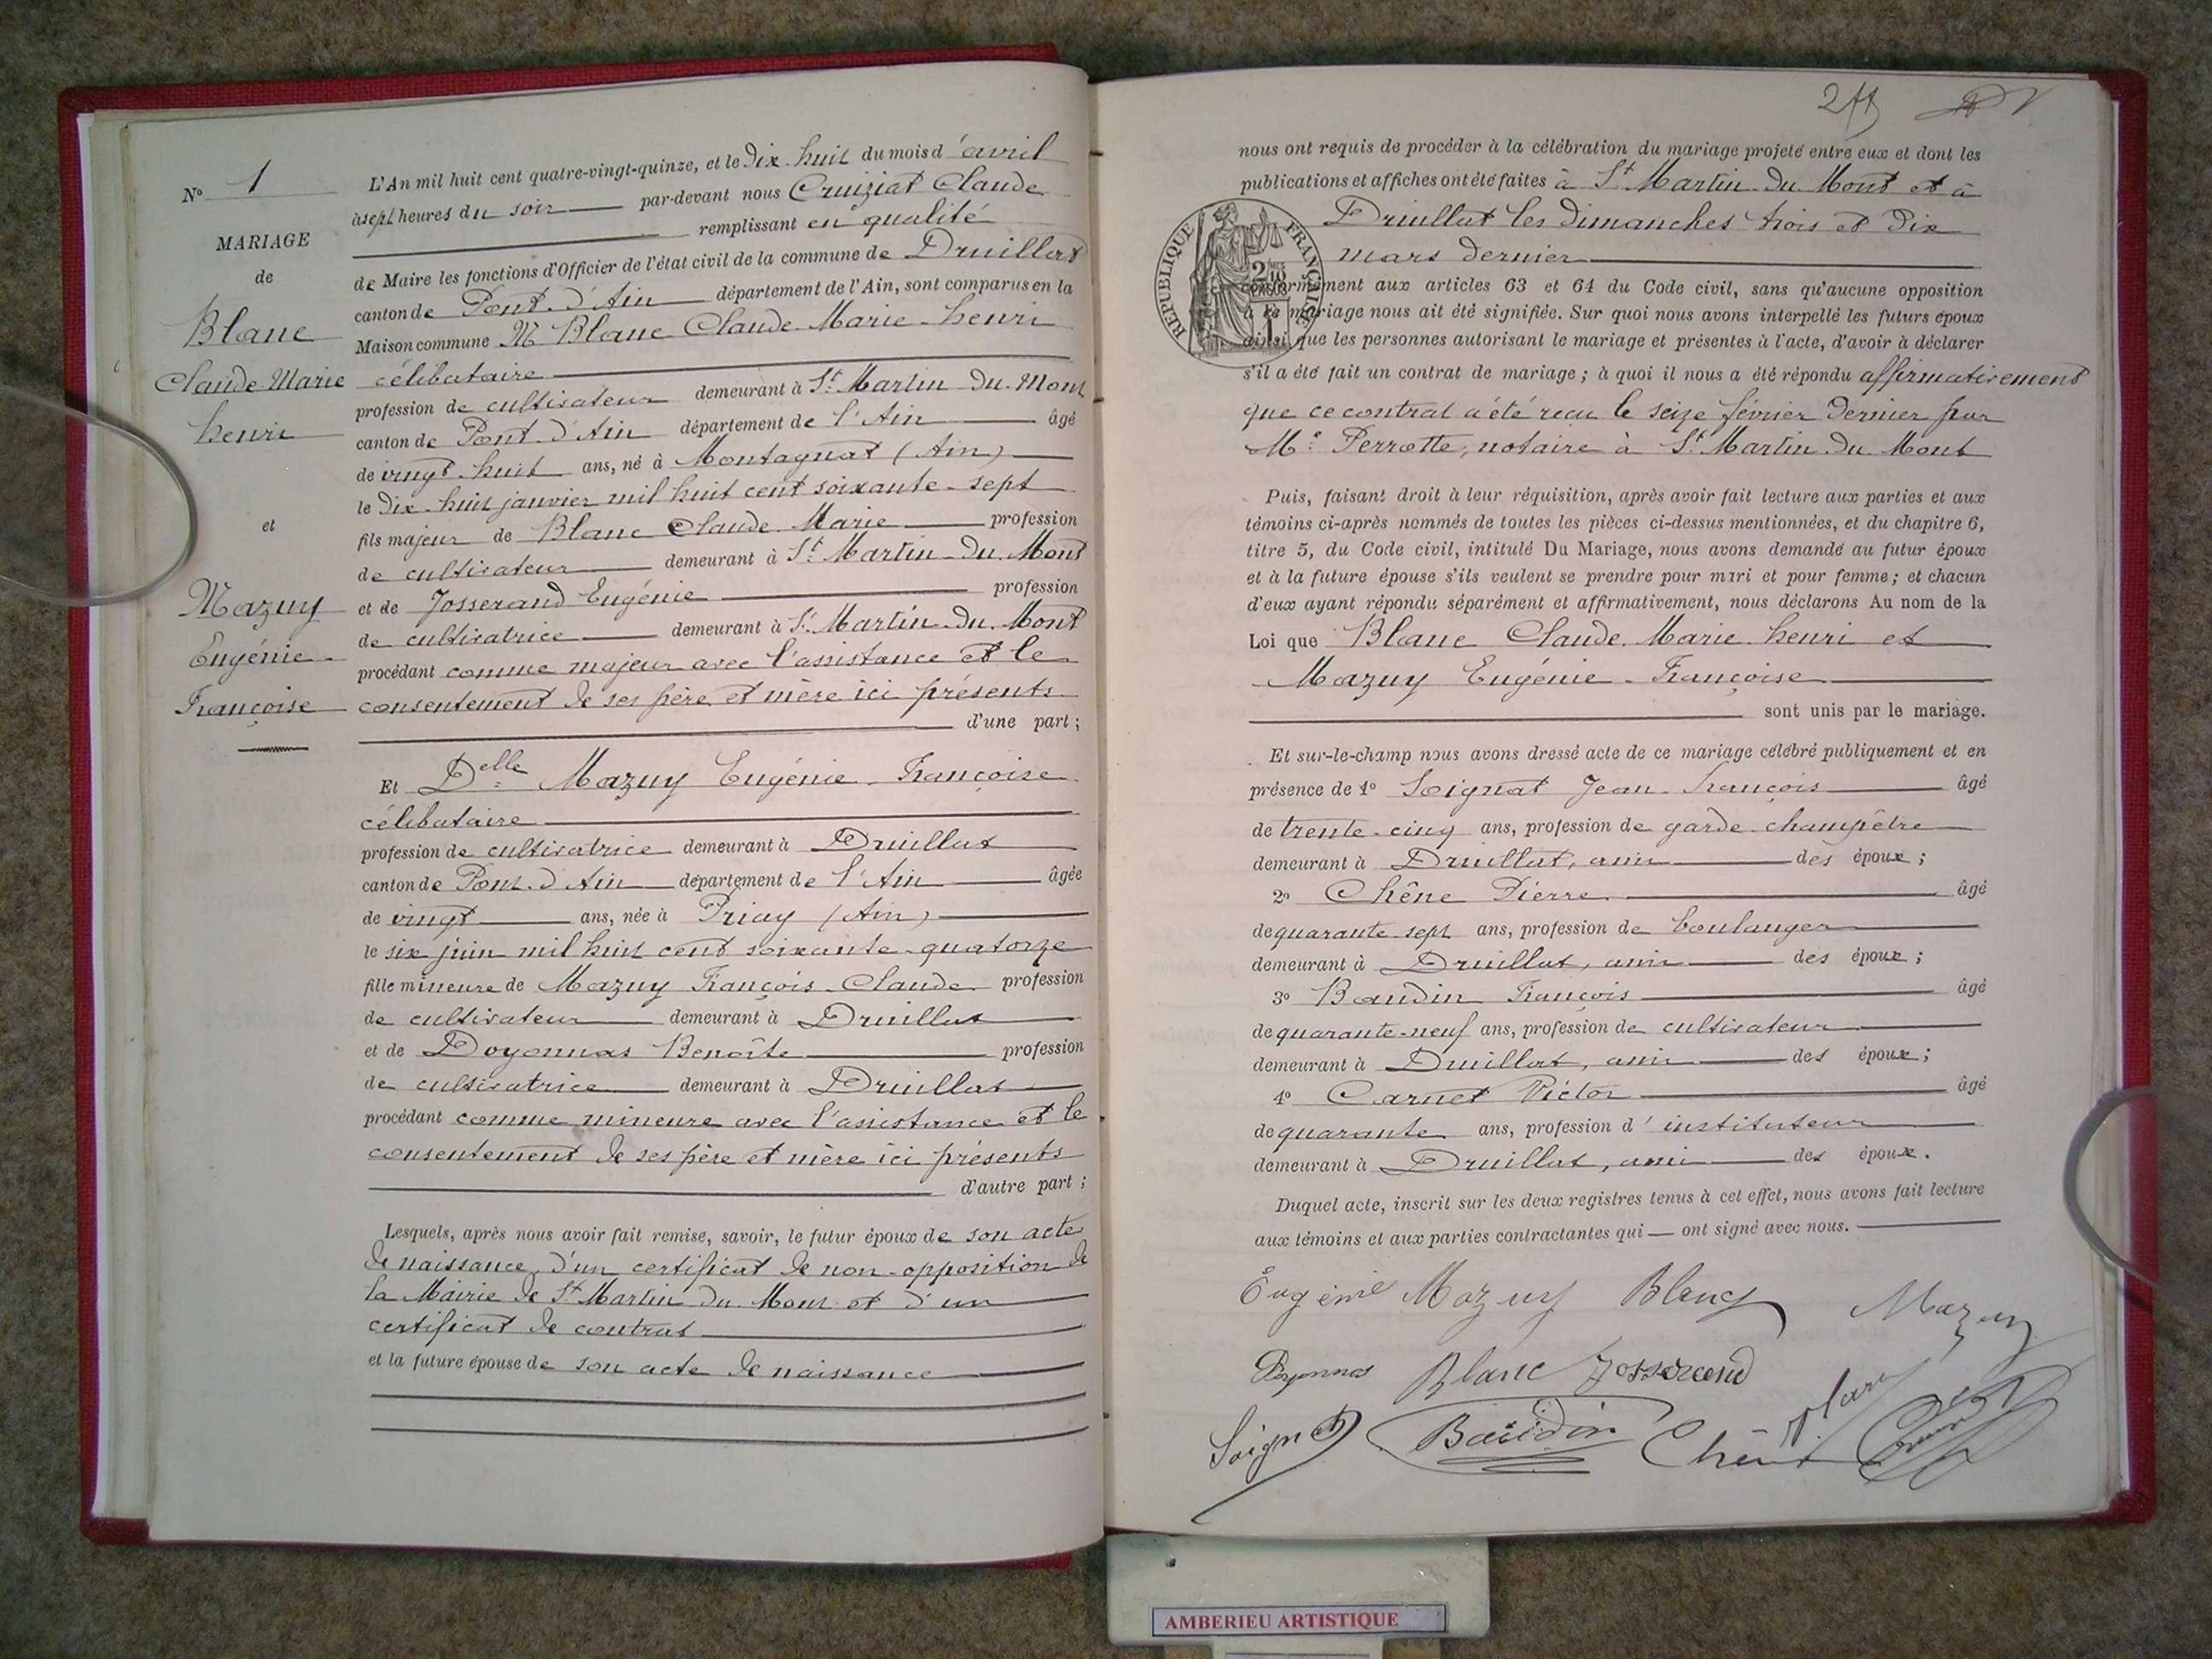 N° 1
MARIAGE
de
Blanc
Claude Marie
henri
et
Mazuy
Eugénie
Françoise
L'An mil huit cent quatre-vingt-quinze, et le Dix-huit du mois d'avril
à sept heures du soir par-devant nous Cruiziat Claude
remplissant en qualité
de Maire les fonctions d'Officier de l'état civil de la commune de Druillat
canton de Pont-d'Ain département de l'Ain, sont comparus en la
Maison commune M Blanc Claude-Marie-henri
célibataire
profession de cultivateur demeurant à St Martin-du-Mont
canton de Pont-d'Ain département de l'Ain âgé
de vingt-huit ans, né à Montagnat (Ain)
le dix-huit janvier mil huit cent soixante-sept
fils majeur de Blanc Claude-Marie profession
de cultivateur demeurant à St Martin-du-Mont
et de Josserand Eugénie profession
de cultivatrice demeurant à St Martin-du-Mont
procédant comme majeur avec l'assistance et le
consentement de ses père et mère ici présents
d'une part;
Et Delle Mazuy Eugénie-Françoise
célibataire
profession de cultivatrice demeurant à Druillat
canton de Pont-d'Ain département de l'Ain âgée
de vingt ans, née à Priay (Ain)
le six juin mil huit cent soixante-quatorze
fille mineure de Mazuy François-Claude profession
de cultivateur demeurant à Druillat
et de Doyonnas Benoîte profession
de cultivatrice demeurant à Druillat
procédant comme mineure avec l'assistance et le
consentement de ses père et mère ici présents
d'autre part;
Lesquels, après nous avoir fait remise, savoir, le futur époux de son acte
de naissance, d'un certificat de non-opposition de
la Mairie de St Martin du Mont et d'un
certificat de contrat
et la future épouse de son acte de naissance
nous ont requis de procéder à la célébration du mariage projeté entre eux et dont les
publications et affiches ont été faites à St Martin-du-Mont et à
Druillat les dimanches trois et dix
mars dernier
RÉPUBLIQUE FRANÇAISE
conformément aux articles 63 et 64 du Code civil, sans qu'aucune opposition
à ce mariage nous ait été signifiée. Sur quoi nous avons interpellé les futurs époux
ainsi que les personnes autorisant le mariage et présentes à l'acte, d'avoir à déclarer
s'il a été fait un contrat de mariage; à quoi il nous a été répondu affirmativement
que ce contrat a été reçu le seize février dernier par
Me Perrotte, notaire à St Martin du Mont
Puis, faisant droit à leur réquisition, après avoir fait lecture aux parties et aux
témoins ci-après nommés de toutes les pièces ci-dessus mentionnées, et du chapitre 6,
titre 5, du Code civil, intitulé Du Mariage, nous avons demandé au futur époux
et à la future épouse s'ils veulent se prendre pour mari et pour femme; et chacun
d'eux ayant répondu séparément et affirmativement, nous déclarons Au nom de la
Loi que Blanc Claude-Marie-henri et
Mazuy Eugénie-Françoise
sont unis par le mariage.
Et sur-le-champ nous avons dressé acte de ce mariage célébré publiquement et en
présence de 1° Soignat Jean-François âgé
de trente-cinq ans, profession de garde-champêtre
demeurant à Druillat, ami des époux;
2° Chêne Pierre âgé
de quarante-sept ans, profession de boulanger
demeurant à Druillat, ami des époux;
3° Baudin François âgé
de quarante-neuf ans, profession de cultivateur
demeurant à Druillat, ami des époux;
4° Carnet Victor âgé
de quarante ans, profession d'instituteur
demeurant à Druillat, ami des époux.
Duquel acte, inscrit sur les deux registres tenus à cet effet, nous avons fait lecture
aux témoins et aux parties contractantes qui ont signé avec nous.
Eugénie Mazuy Blanc Mazuy
Doyonnas Blanc Josserand
Soignat Baudin Chêne
AMBERIEU ARTISTIQUE